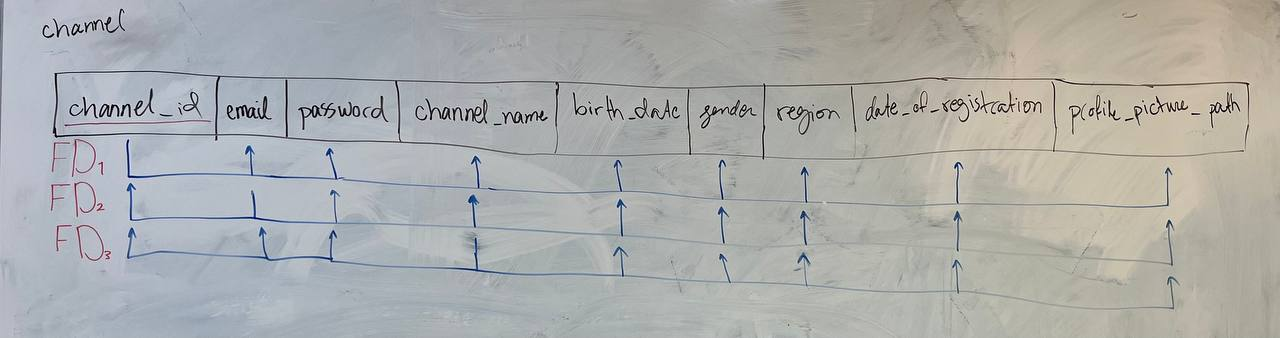 channel
channel_id email password channel_name birth_date gender region date_of_registration profile_picture_path
FD1
FD2
FD3